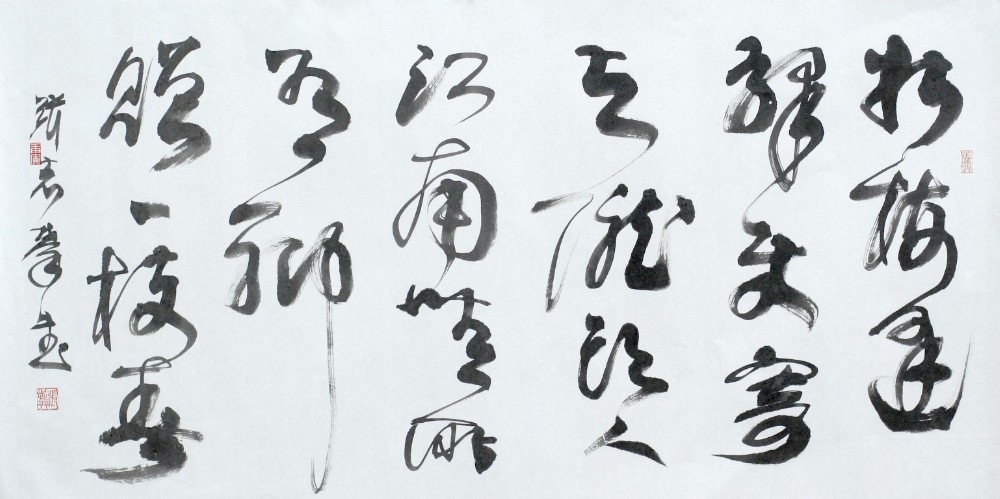 折梅逢
驛使寄
与隴頭人
江南無所
有聊
贈一枝春